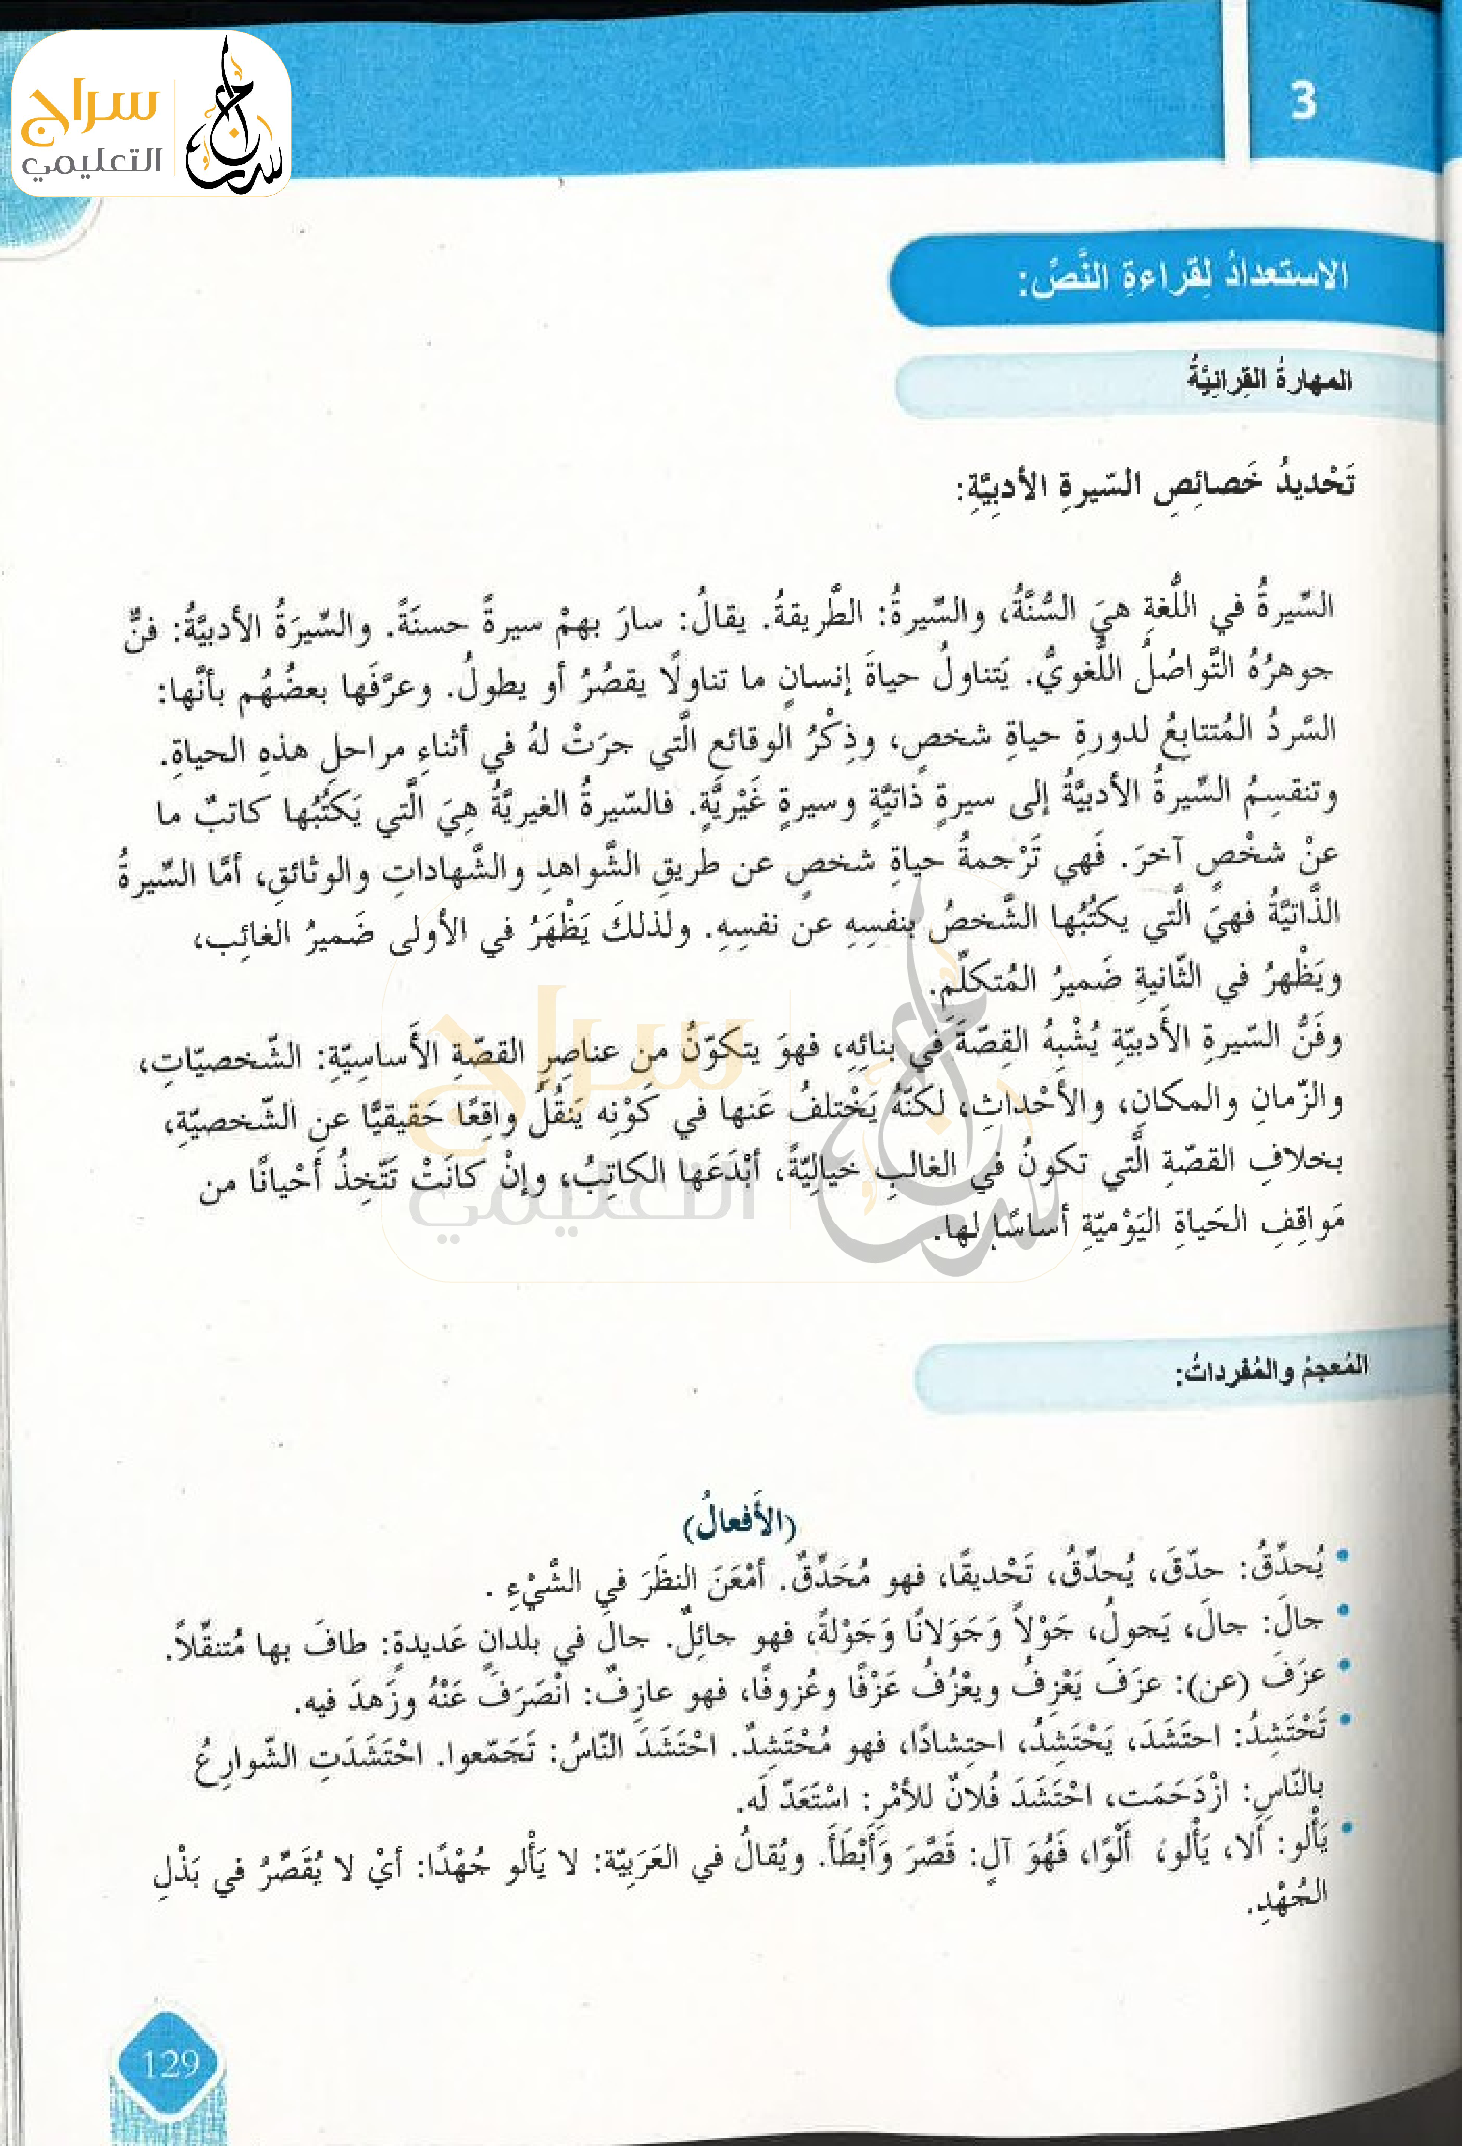 سراج
التعليمي
3
الاستعدادُ لِقراءةِ النَّصِّ:
المهارةُ القِرائِيَّةُ
تَحْديدُ خَصائِصِ السّيرةِ الأدبِيَّةِ:
السِّيرةُ في اللُّغةِ هيَ السُّنَّةُ، والسِّيرةُ: الطَّريقةُ. يقالُ: سارَ بهمْ سيرةً حسنَةً. والسِّيرَةُ الأدبيَّةُ: فنٌّ
جوهرُهُ التَّواصُلُ اللُّغويُّ. يَتناولُ حياةَ إنسانٍ ما تناولًا يقصُرُ أو يطولُ. وعرَّفَها بعضُهُم بأنَّها:
السَّردُ المُتتابِعُ لدورةِ حياةِ شخصٍ، وذِكْرُ الوقائعِ الَّتي جرَتْ لهُ في أثناءِ مراحلِ هذهِ الحياةِ.
وتنقسِمُ السِّيرةُ الأدبيَّةُ إلى سيرةٍ ذاتيَّةٍ وسيرةٍ غَيْريَّةٍ. فالسّيرةُ الغيريَّةُ هِيَ الَّتي يَكتُبُها كاتبٌ ما
عنْ شخْصٍ آخرَ. فَهي تَرْجمةُ حياةِ شخصٍ عن طريقِ الشَّواهدِ والشَّهاداتِ والوثائقِ، أمَّا السِّيرةُ
الذَّاتيَّةُ فهيَ الَّتي يكتُبُها الشَّخصُ بنفسِهِ عن نفسِهِ. ولذلكَ يَظْهَرُ في الأولى ضَميرُ الغائِب،
ويَظْهرُ في الثّانيةِ ضَميرُ المُتكلِّمِ.
وفَنُّ السّيرةِ الأَدبيّةِ يُشْبِهُ القِصّةَ في بنائِهِ، فهوَ يتكوّنُ مِن عناصِرِ القصّةِ الأَساسِيّةِ: الشّخصيّاتِ،
والزّمانِ والمكانِ، والأحْداثِ، لكنّهُ يَخْتلفُ عَنها في كَوْنِه يَنقُلُ واقِعًا حَقيقيًّا عنِ الشّخصيّةِ،
بخلافِ القصّةِ الَّتي تكونُ في الغالبِ خياليّةً، أبْدَعَها الكاتِبُ، وإنْ كانَتْ تَتّخِذُ أحْيانًا من
مَواقِفِ الحَياةِ اليَوْميّةِ أساسًا لها.
المُعجمُ والمُفرداتُ:
(الأَفعالُ)
• يُحدِّقُ: حدّقَ، يُحدِّقُ، تَحْديقًا، فهو مُحَدِّقٌ. أمْعَنَ النظَرَ في الشَّيْءِ .
• جالَ: جالَ، يَجولُ، جَوْلاً وَجَوَلانًا وَجَوْلةً، فهو جائِلٌ. جالَ في بلدانٍ عَديدةٍ: طافَ بها مُتنقِّلاً.
• عزَفَ (عن): عزَفَ يَعْزِفُ ويعْزُفُ عَزْفًا وعُزوفًا، فهو عازِفٌ: انْصَرَفَ عَنْهُ وزَهدَ فيه.
• تَحْتَشِدُ: احتَشَدَ، يَحْتَشِدُ، احتِشادًا، فهو مُحْتَشِدٌ. احْتَشَدَ النّاسُ: تَجَمّعوا. احْتَشَدَتِ الشّوارِعُ
بالنّاسِ: ازْدَحَمَت، احْتَشَدَ فُلانٌ للأمْرِ: اسْتَعَدّ لَه.
• يَأْلو: ألا، يَأْلو، أَلْوًا، فَهُوَ آلٍ: قَصَّرَ وَأَبْطَأَ. ويُقالُ في العَرَبِيّة: لا يَألو جُهْدًا: أيْ لا يُقَصِّرُ في بَذْلِ
الجُهْدِ.
129